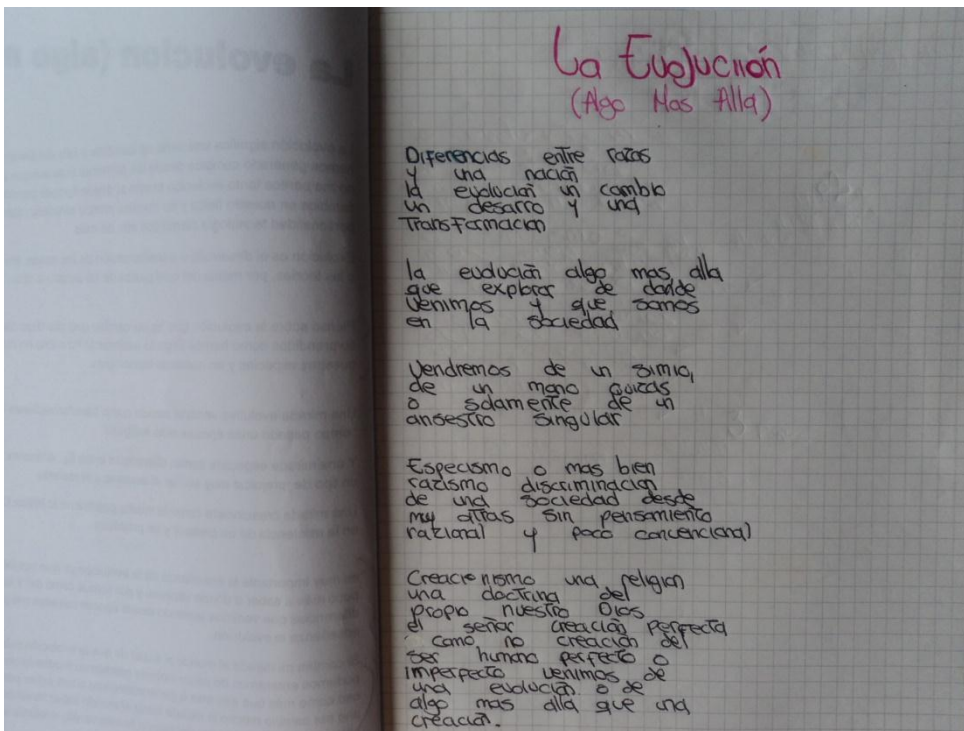 La Evolución
(Algo Mas Alla)
Diferencias entre razas
y una nación
la evolución un cambio
un desarro y una
Transformacion
la evolución algo mas alla
que explorar de donde
venimos y que somos
en la sociedad
Vendremos de un simio,
de un mono quizas
o solamente de un
ansestro singular
Especismo o mas bien
razismo discriminacion
de una sociedad desde
muy attras sin pensamiento
razional y poco convencional
Creacionismo una religion
una doctrina del
propio nuestro Dios
el señor creación perfecta
como no creación del
ser humano perfecto o
imperfecto venimos de
una evolución o de
algo mas alla que una
creación.